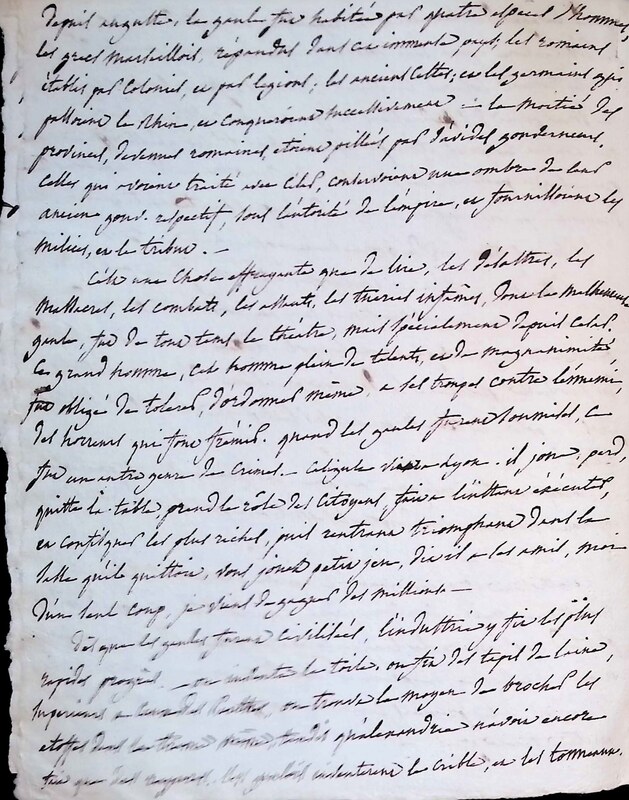 depuis auguste, la gaule fut habitée par quatre especes d'hommes,
les grecs marseillois, répandus dans ce immense pays; les romains
établis par colonies, et par legions; les anciens Celtes; et les germains qui
passoient le Rhin, et conqueroient successivement — la moitié des
provinces, devenues romaines, étoient pillées par d'avides gouverneurs,
Celles qui avoient traité avec César, conservoient une ombre de leur
ancien gouv. respectif, sous l'autorité de l'empire, et fournissoient les
milices, et le tribut. —
C'est une Chose effrayante que de lire, les désastres, les
massacres, les combats, les assauts, les infâmes, dont la malheureuse
gaule, fut de tout tems le theatre, mais spécialement depuis César.
Ce grand homme, cet homme plein de talents, et de magnanimité,
fut obligé de tolerer, d'ordonner même, a ses troupes contre l'ennemi,
des horreurs qui font frémir. quand les gaules furent soumises, ce
fut un autre genre de crimes. — Caligula vient a Lyon. il joue, perd,
quitte la table prend le rôle des Citoyens, fait a l'instant exécuter,
et confisquer les plus riches, puis rentrant triomphant dans la
salle qu'il quittoit, vous jouez petit jeu, dit il a ses amis, moi
d'un seul coup, je viens de gagner des millions —
Dès que les gaules furent civilisées, l'industrie y fit les plus
rapides progrès. — on inventa la toile, on fit des tapis de laine,
superieurs a ceux des Parthes, on trouva le moyen de brocher les
étoffes dans la trame même, tandis qu'alexandrie n'avoit encore
que des, les gaulois inventerent le crible, et les tonneaux.